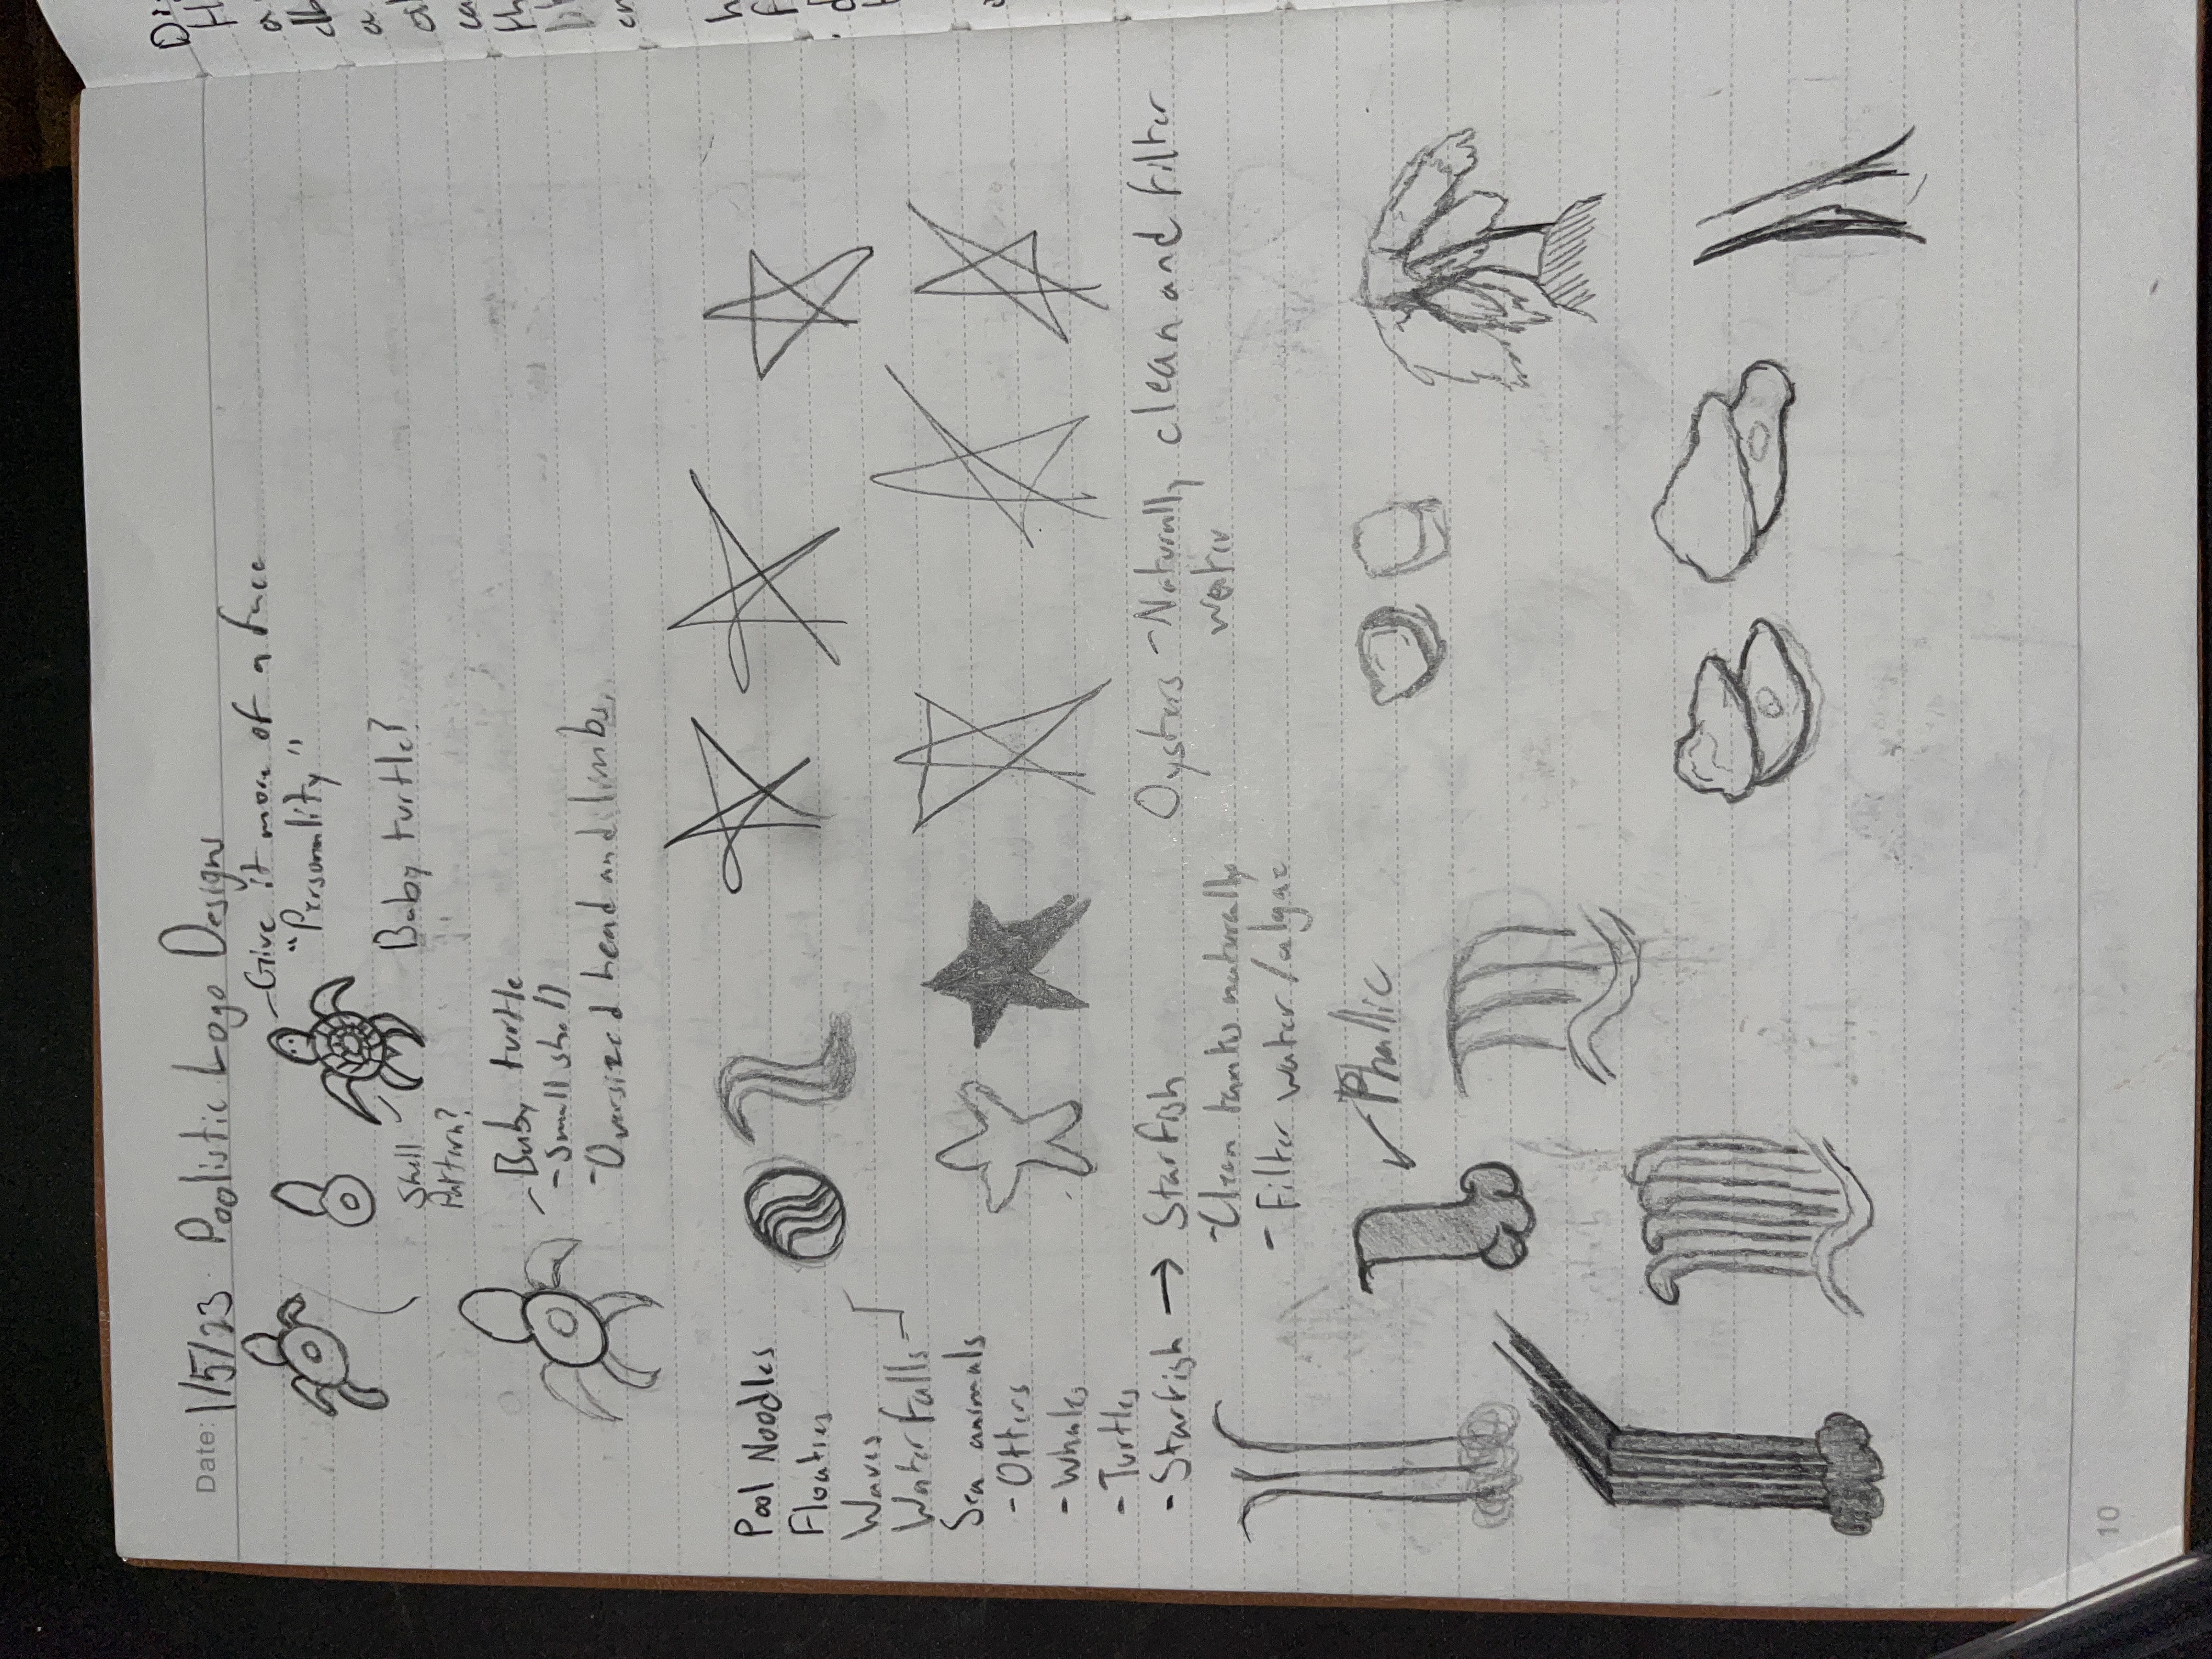 Date: 1/5/23 Poolistic Logo Designs
- Give it more of a face
"Personality"
Shell
Pattern?
Baby turtle?
- Baby turtle
- Small shell
- Oversized head and limbs.
Pool Noodles
Floaties
Waves
Waterfalls
Sea animals
- Otters
- Whales
- Turtles
- Starfish → Starfish
- Clean tanks naturally
- Filter water / algae
Oysters - Naturally clean and filter
water
Phallic
10